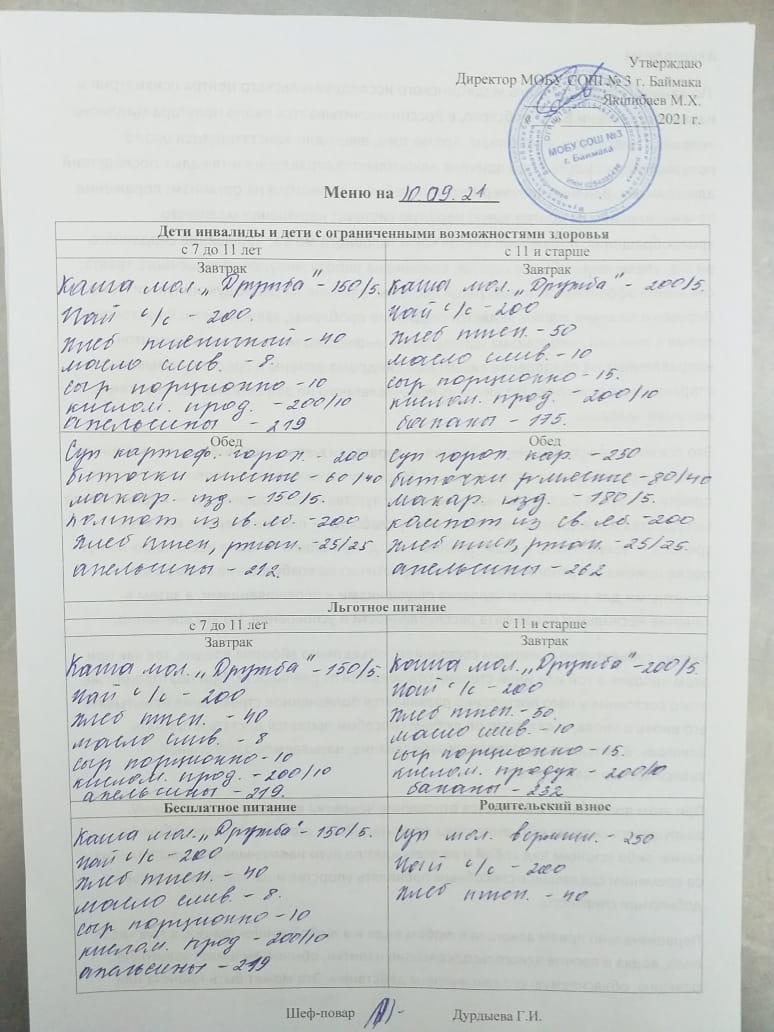 Утверждаю
Директор МОБУ СОШ № 3 г. Баймака
Якшибаев М.Х.
2021 г.
МОБУ СОШ №3
г. Баймака
Меню на 10.09.21
Дети инвалиды и дети с ограниченными возможностями здоровья
с 7 до 11 лет
Завтрак
Каша мол. „Дружба" - 150/5.
Чай с/с - 200.
Хлеб пшеничный - 40
масло слив. - 8.
сыр порционно - 10
кислом. прод. - 200/10
апельсины - 219
с 11 и старше
Завтрак
Каша мол. „Дружба" - 200/5.
Чай с/с - 200
Хлеб пшен. - 50
масло слив. - 10
сыр порционно - 15.
кислом. прод. - 200/10
бананы - 175.
Обед
Суп картоф. горох. - 200
биточки мясные - 60/40
макар. изд. - 150/5.
компот из св. яб. - 200
Хлеб пшен, ржан. - 25/25
апельсины - 212.
Обед
Суп горох. кар. - 250
биточки мясные - 80/40
макар. изд. - 180/5.
компот из св. яб. - 200
Хлеб пшен, ржан. - 25/25.
апельсины - 262
Льготное питание
с 7 до 11 лет
Завтрак
Каша мол. „Дружба" - 150/5.
Чай с/с - 200
Хлеб пшен. - 40
масло слив. - 8
сыр порционно - 10
кислом. прод. - 200/10
апельсины - 219.
с 11 и старше
Завтрак
Каша мол. „Дружба" - 200/5.
Чай с/с - 200
Хлеб пшен. - 50.
масло слив. - 10
сыр порционно - 15.
кислом. продук - 200/10
бананы - 232
Бесплатное питание
Каша мол. „Дружба" - 150/5.
Чай с/с - 200
Хлеб пшен. - 40
масло слив. - 8.
сыр порционно - 10
кислом. прод - 200/10
апельсины - 219
Родительский взнос
Суп мол. вермиш. - 250
Чай с/с - 200
Хлеб пшен. - 40
Шеф-повар Дурдыева Г.И.